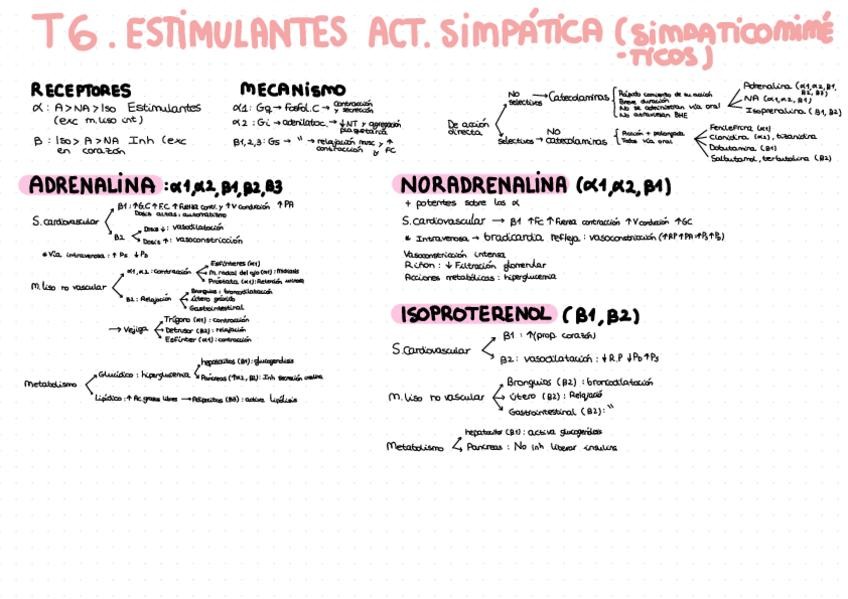 T6. ESTIMULANTES ACT. SIMPÁTICA (SIMPATICOMIMÉ
-TICOS)
RECEPTORES
α: A > NA > Iso Estimulantes
(exc m.liso int)
B: Iso > A > NA Inh (exc
en corazón
MECANISMO
α1: Gq → Fosfol.C → contracción
y secreción
α2: Gi → adenilatoc. → ↓NT y agregación
plaquetaria
B1,2,3: Gs → " → relajación musc y ↑
contracción y FC
De acción
directa
No
selectivos → Catecolaminas
Rápido comienzo de su acción
Breve duración
No se administran vía oral
No atraviesan BHE
Adrenalina (α1,α2,B1,
B2,B3)
NA (α1,α2,B1)
Isoprenalina (B1,B2)
selectivos → NO
catecolaminas
Acción + prolongada
Todas vía oral
Fenilefrina (α1)
Clonidina (α2), tizanidina
Dobutamina (B1)
Salbutamol, terbutalina (B2)
ADRENALINA : α1,α2,B1,B2,B3
S.cardiovascular
B1: ↑G.C ↑F.C ↑Fuerza contr. y ↑V conducción ↑PA
Dosis altas: automatismo
B2
Dosis ↓: vasodilatación
Dosis ↑: vasoconstricción
* Vía intravenosa: ↑Ps ↓Pd
M.liso no vascular
α1,α2: Contracción
Esfínteres (α1)
M. radial del ojo (α1): Midriasis
Próstata (α1): Retención urinaria
B2: Relajación
Bronquios: broncodilatación
Útero grávido
Gastrointestinal
→ Vejiga
Trígono (α1): contracción
Detrusor (B2): relajación
Esfínter (α1): contracción
Metabolismo
Glucídico: hiperglucemia
hepatocitos (B1): glucogenólisis
Páncreas (↑α2, B2): Inh secreción insulina
Lipídico: ↑Ac.grasos libres → Adipocitos (B3): activa lipólisis
NORADRENALINA (α1,α2,B1)
+ potentes sobre los α
S.cardiovascular → B1 ↑Fc ↑Fuerza contracción ↑V conducción ↑GC
* Intravenosa → bradicardia refleja: vasoconstricción (↑RP↑PA↑Ps↑Pd)
Vasoconstricción intensa
Riñon: ↓ Filtración glomerular
Acciones metabólicas: hiperglucemia
ISOPROTERENOL (B1,B2)
S.Cardiovascular
B1: ↑(prop. corazón)
B2: vasodilatación: ↓R.P ↓Pd ↑Ps
M.liso no vascular
Bronquios (B2): broncodilatación
Útero (B2): Relajació
Gastrointestinal (B2): "
Metabolismo
hepatocitos (B1): activa glucogenólisis
Pancreas: No inh liberar insulina